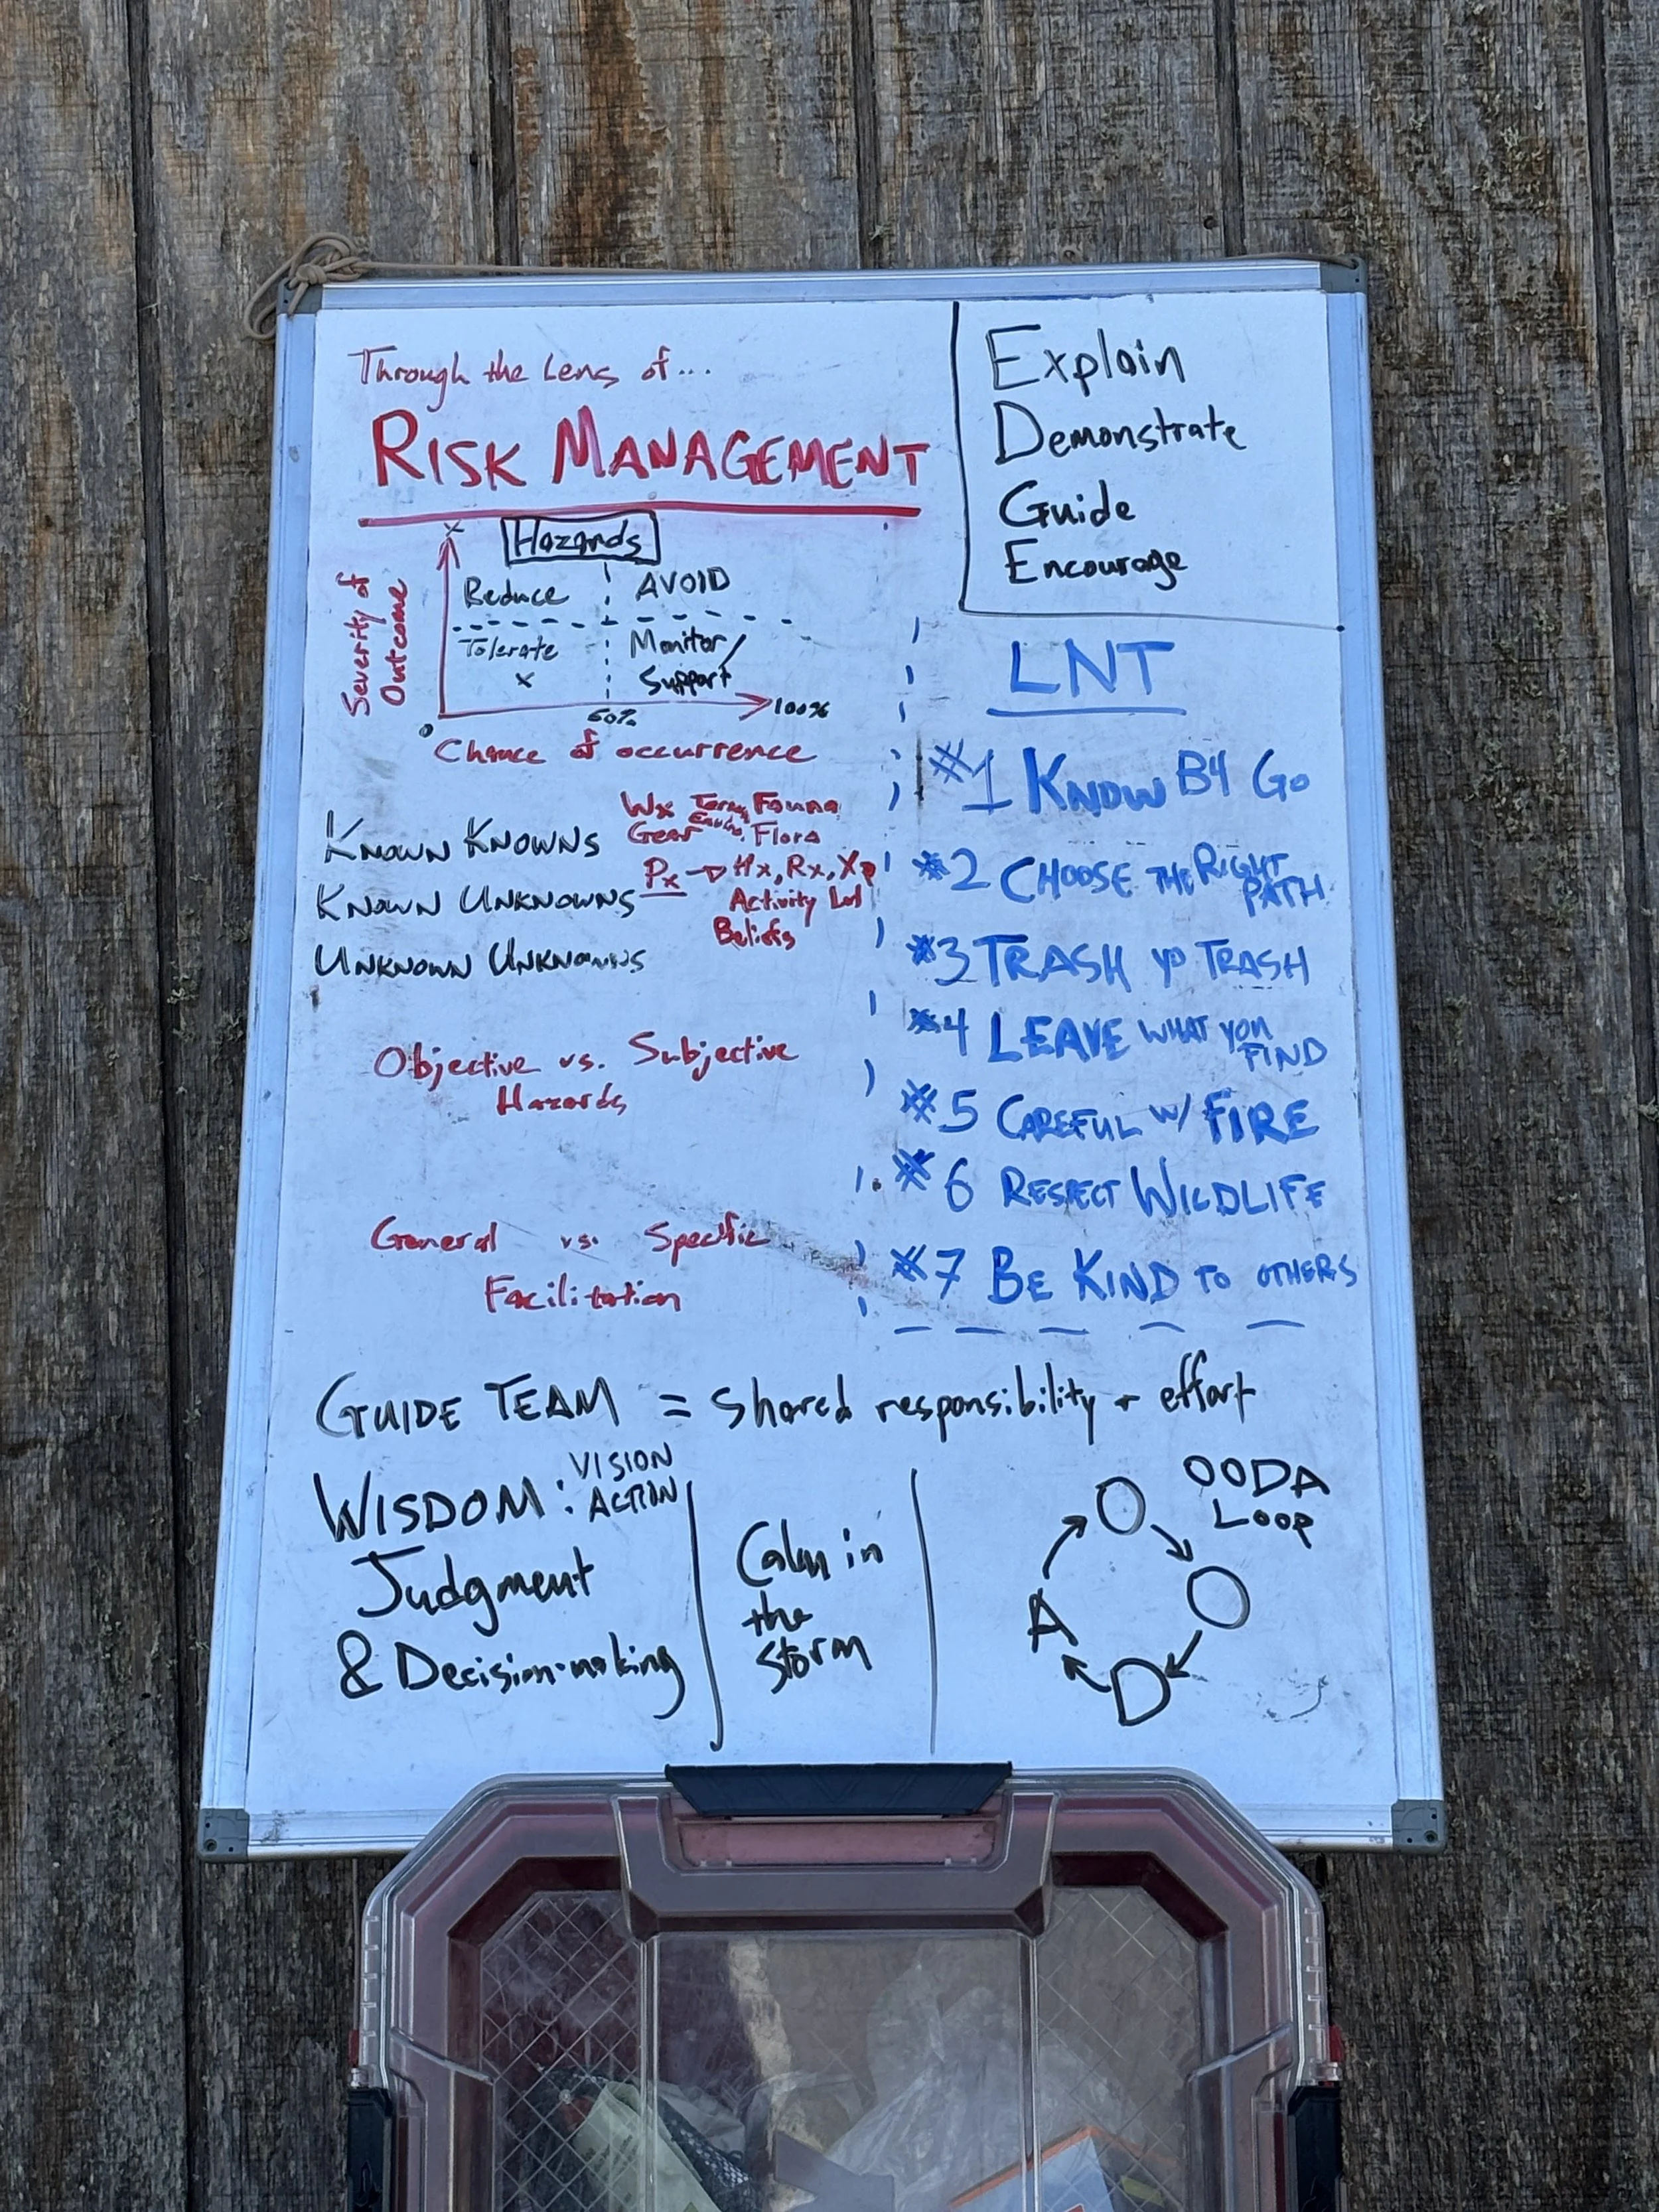 Through the Lens of...
RISK MANAGEMENT
Hazards
Severity of
Outcome
x
Reduce
AVOID
Tolerate
x
Monitor/
Support
0
50%
100%
Chance of occurrence
KNOWN KNOWNS
Wx Fauna
Gear Flora
KNOWN UNKNOWNS
Px → Hx, Rx, Xp
Activity Lvl
Beliefs
UNKNOWN UNKNOWNS
Objective vs. Subjective
Hazards
General vs. Specific
Facilitation
Explain
Demonstrate
Guide
Encourage
LNT
#1 KNOW B4 GO
#2 CHOOSE THE RIGHT
PATH
#3 TRASH YO TRASH
#4 LEAVE WHAT YOU
FIND
#5 CAREFUL W/ FIRE
#6 RESPECT WILDLIFE
#7 BE KIND TO OTHERS
GUIDE TEAM = shared responsibility + effort
WISDOM: VISION
ACTION
Judgment
& Decision-making
Calm in
the
storm
OODA
LOOP
O
O
D
A